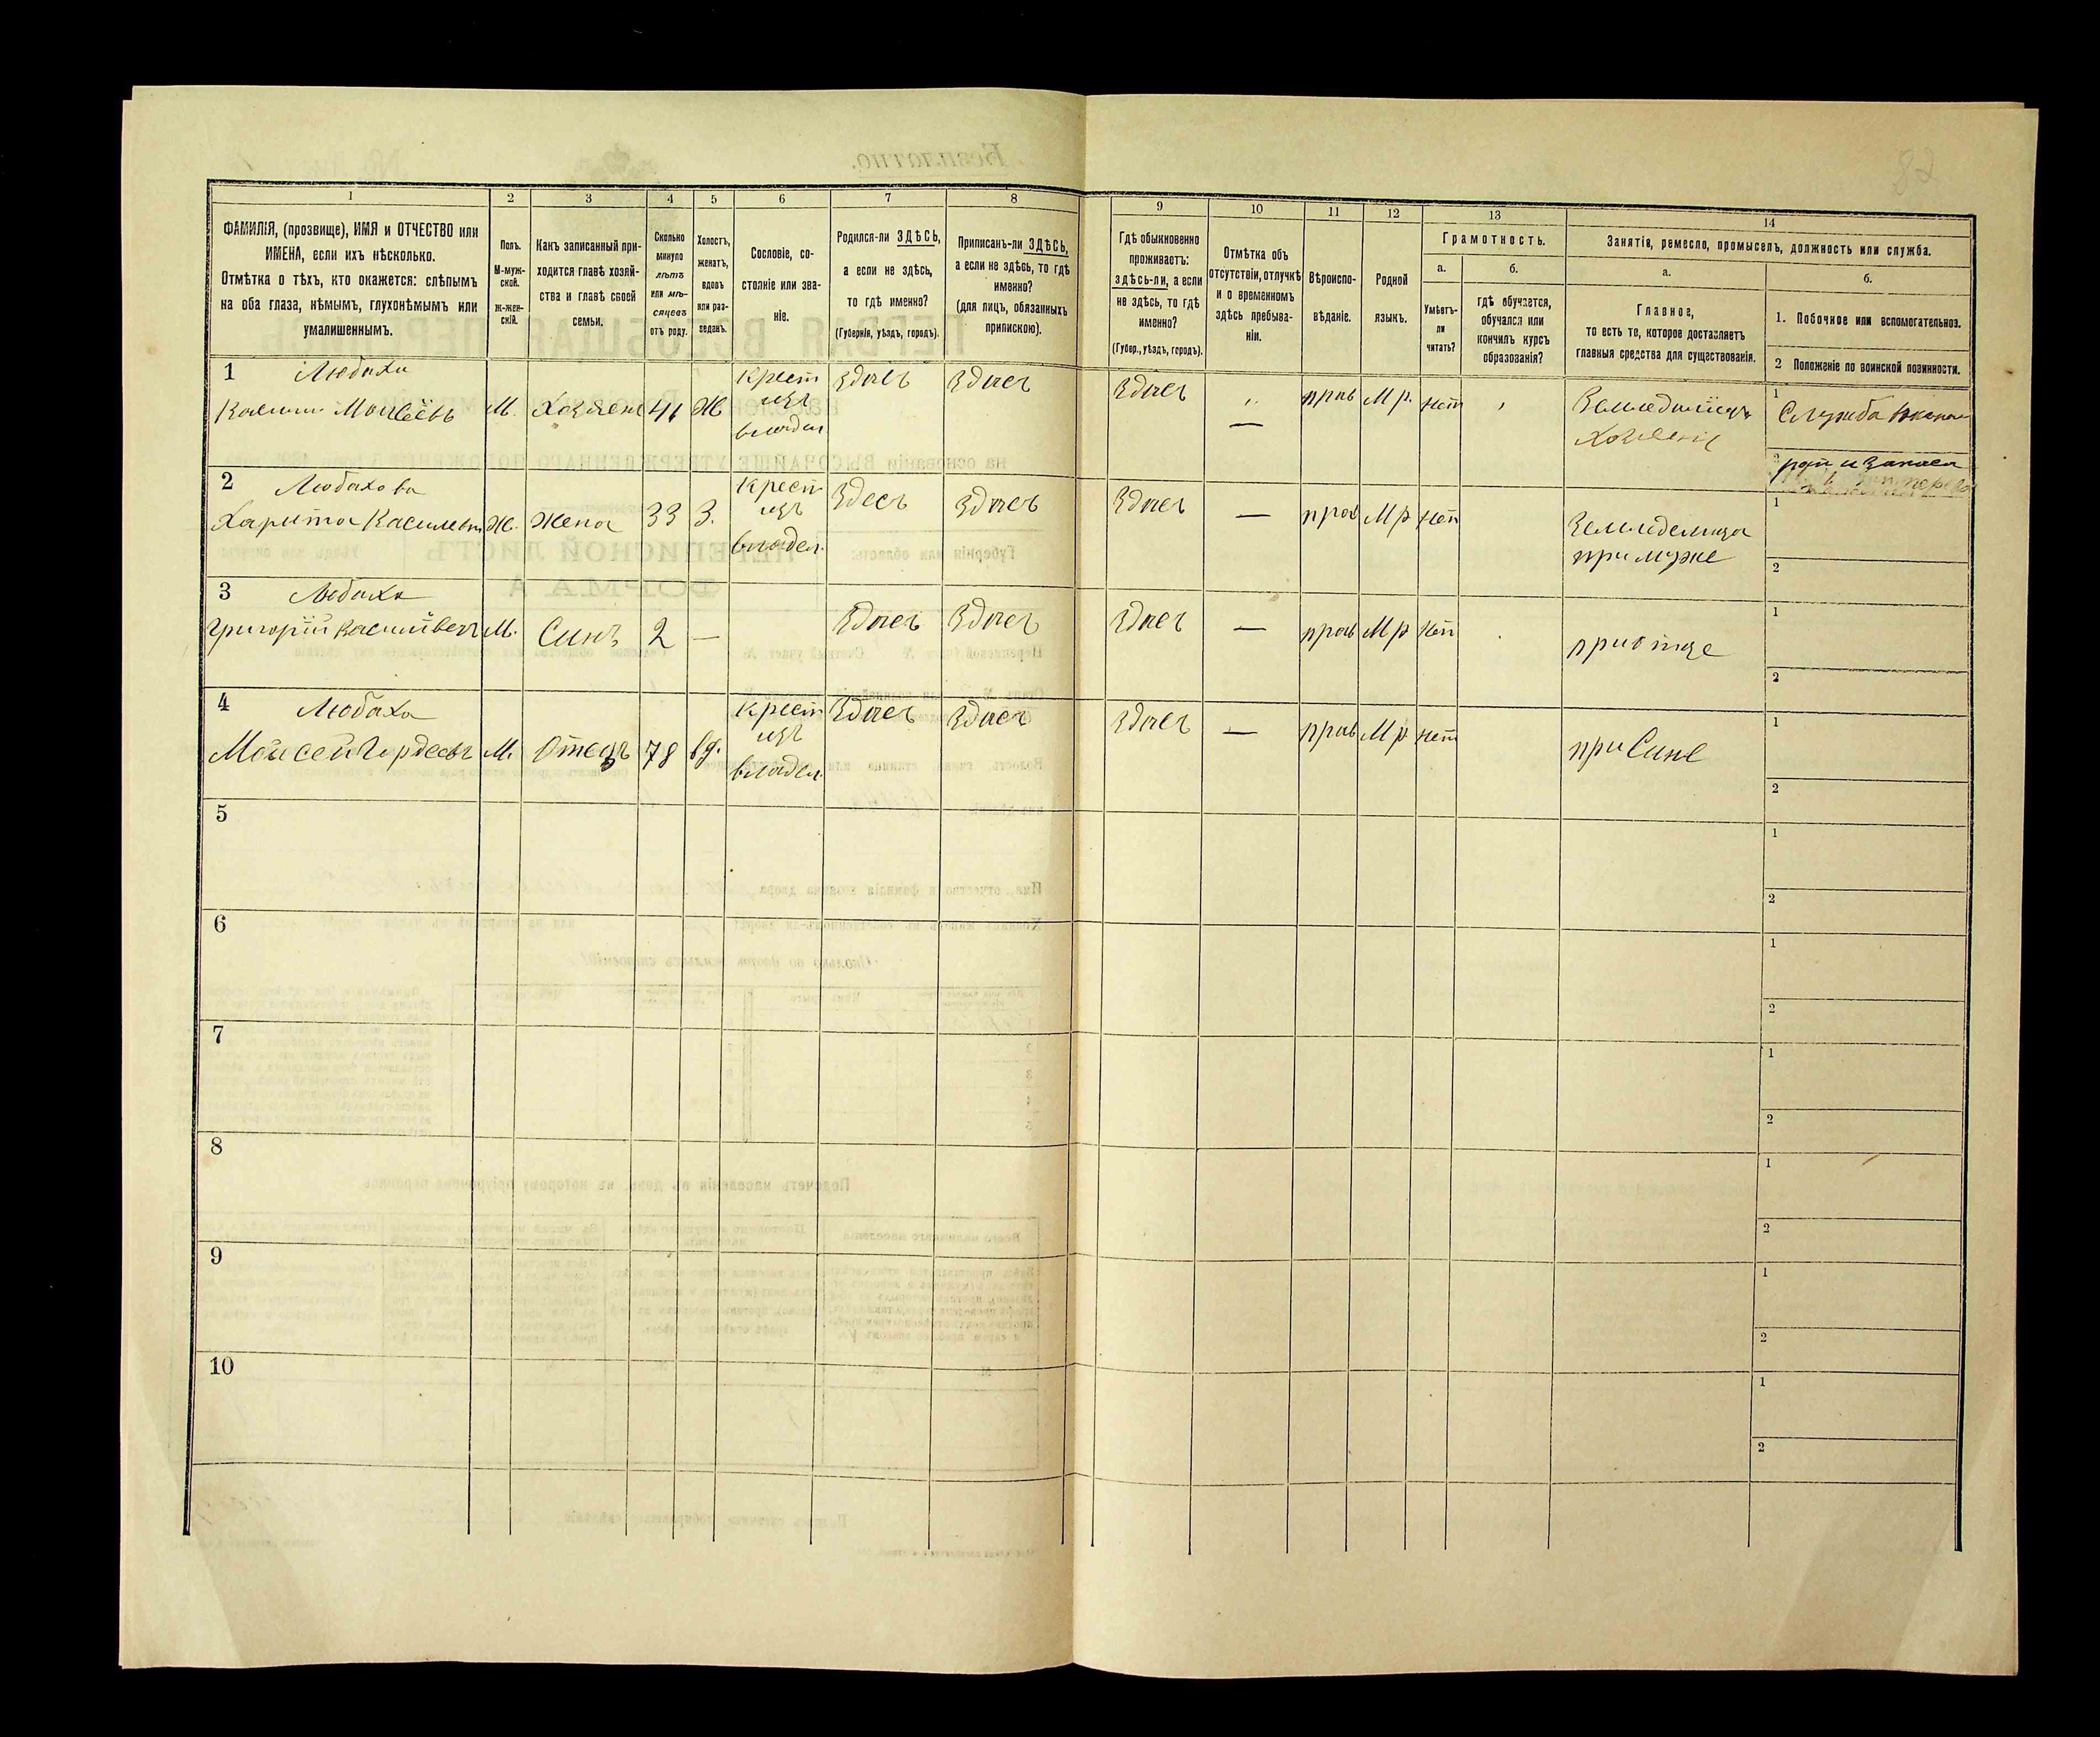 82
1 2 3 4 5 6 7 8 9 10 11 12 13 14
ФАМИЛІЯ, (прозвище), ИМЯ и ОТЧЕСТВО или
ИМЕНА, если ихъ нѣсколько.
Отмѣтка о тѣхъ, кто окажется: слѣпымъ
на оба глаза, нѣмымъ, глухонѣмымъ или
умалишеннымъ.
Полъ.
М-муж-
ской.
Ж-жен-
скій.
Какъ записанный при-
ходится главѣ хозяй-
ства и главѣ своей
семьи.
Сколько
минуло
лѣтъ
или мѣ-
сяцевъ
отъ роду.
Холостъ,
женатъ,
вдовъ
или раз-
веденъ.
Сословіе, со-
стояніе или зва-
ніе.
Родился-ли ЗДѢСЬ,
а если не здѣсь,
то гдѣ именно?
(Губернія, уѣздъ, городъ).
Приписанъ-ли ЗДѢСЬ,
а если не здѣсь, то гдѣ
именно?
(для лицъ, обязанныхъ
припискою).
Гдѣ обыкновенно
проживаетъ:
здѣсь-ли, а если
не здѣсь, то гдѣ
именно?
(Губер., уѣздъ, городъ).
Отмѣтка объ
отсутствіи, отлучкѣ
и о временномъ
здѣсь пребыва-
ніи.
Вѣроиспо-
вѣданіе.
Родной
языкъ.
Грамотность.
а.
Умѣетъ-
ли
читать?
б.
гдѣ обучается,
обучался или
кончилъ курсъ
образованія?
Занятія, ремесло, промыселъ, должность или служба.
а.
Главное,
то есть то, которое доставляетъ
главныя средства для существованія.
б.
1. Побочное или вспомогательное.
2 Положеніе по воинской повинности.
1 Любаха
М. 41 Ж
Крест
изъ
владел
Здѣсь Здѣсь Здѣсь — прав М р. нет
1
2
2 Любахова
Харита Ж. Жена 33 З.
Крест
изъ
владел.
Здесь Здѣсь Здѣсь — прав М р нет
Земледелица
при муже
1
2
3 Любаха
Григорій М. Синъ 2 —
Здѣсь Здѣсь Здѣсь — прав М р нет
при отце
1
2
4 Любаха
Моисей Гордеевъ М. Отецъ 78 вд.
Крест
изъ
владел.
Здѣсь Здѣсь Здѣсь — прав М р нет
при Сине
1
2
5
1
2
6
1
2
7
1
2
8
1
2
9
1
2
10
1
2